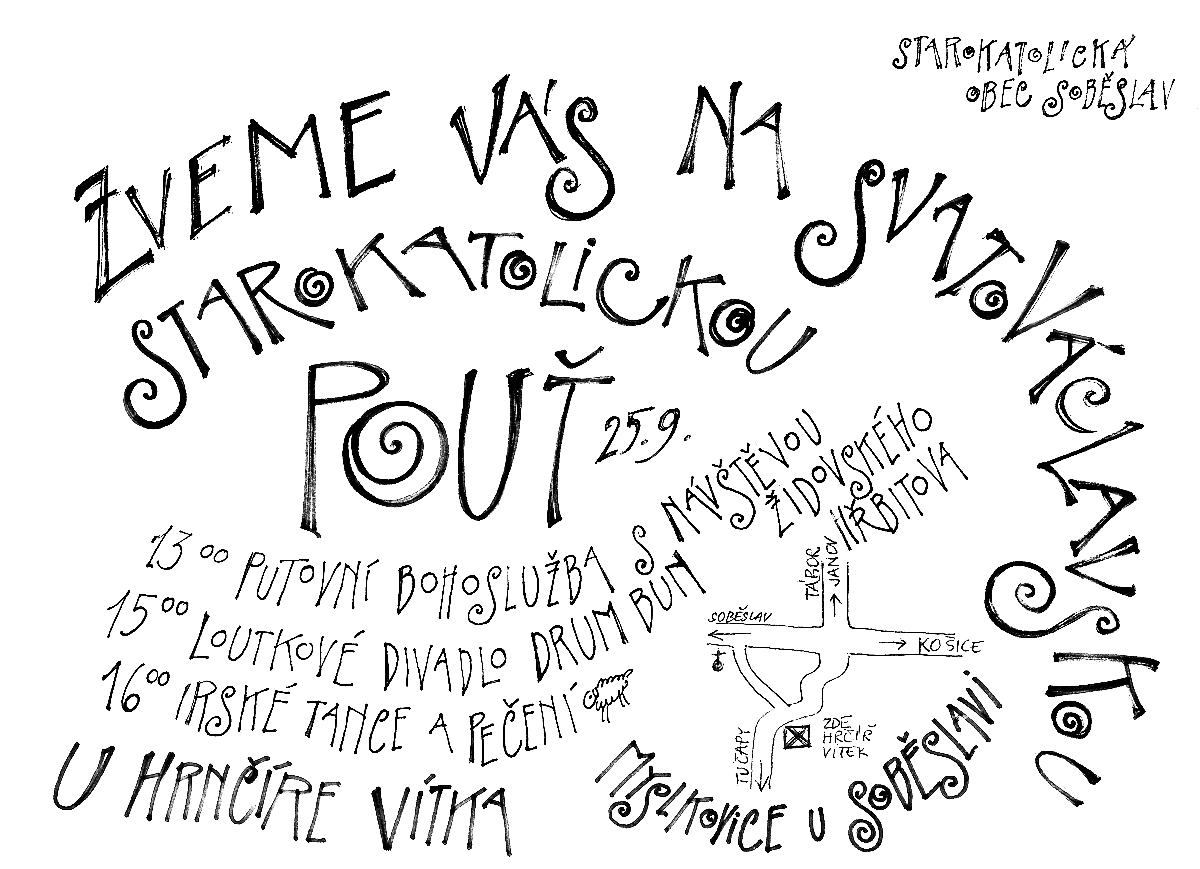 STAROKATOLICKÁ
OBEC SOBĚSLAV
ZVEME VÁS NA SVATOVÁCLAVSKOU
STAROKATOLICKOU
POUŤ 25.9.
13 00 PUTOVNÍ BOHOSLUŽBA S NÁVŠTĚVOU
ŽIDOVSKÉHO
HŘBITOVA
15 00 LOUTKOVÉ DIVADLO DRUM BUM
16 00 IRSKÉ TANCE A PEČENÍ
U HRNČÍŘE VÍTKA
MYSLKOVICE U SOBĚSLAVI
TÁBOR
JANOV
SOBĚSLAV
KOŠICE
TUČAPY
ZDE
HRČÍŘ
VÍTEK